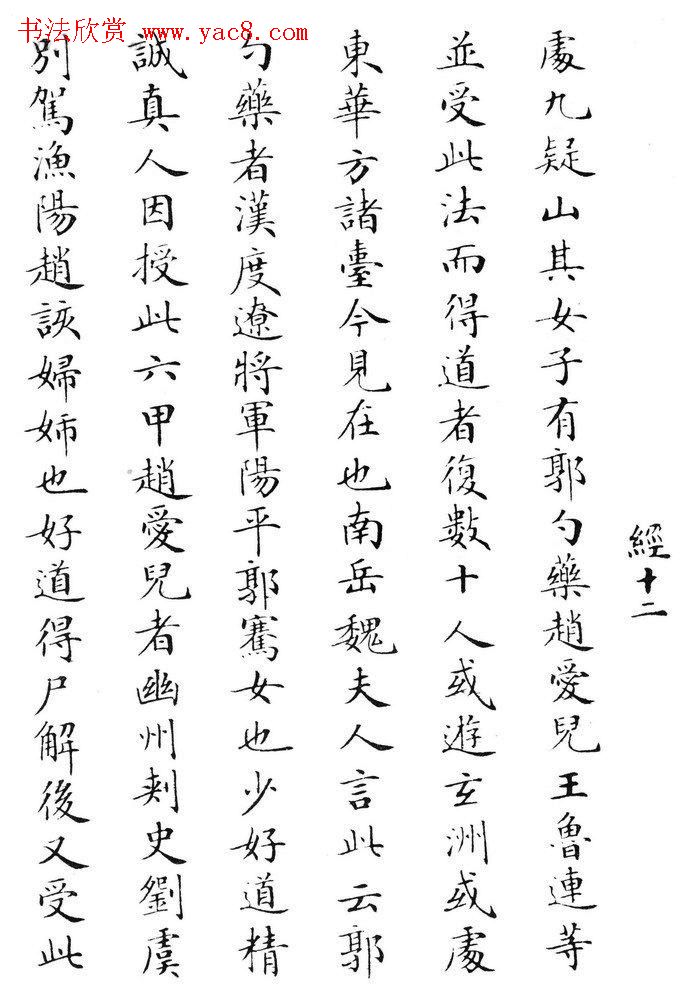 书法欣赏 www.yac8.com
經十二
處九疑山其女子有郭勺藥趙愛兒王魯連等
並受此法而得道者復數十人或遊玄洲或處
東華方諸臺今見在也南岳魏夫人言此云郭
勺藥者漢度遼將軍陽平郭騫女也少好道精
誠真人因授此六甲趙愛兒者幽州刺史劉虞
別駕漁陽趙該婦姉也好道得尸解後又受此